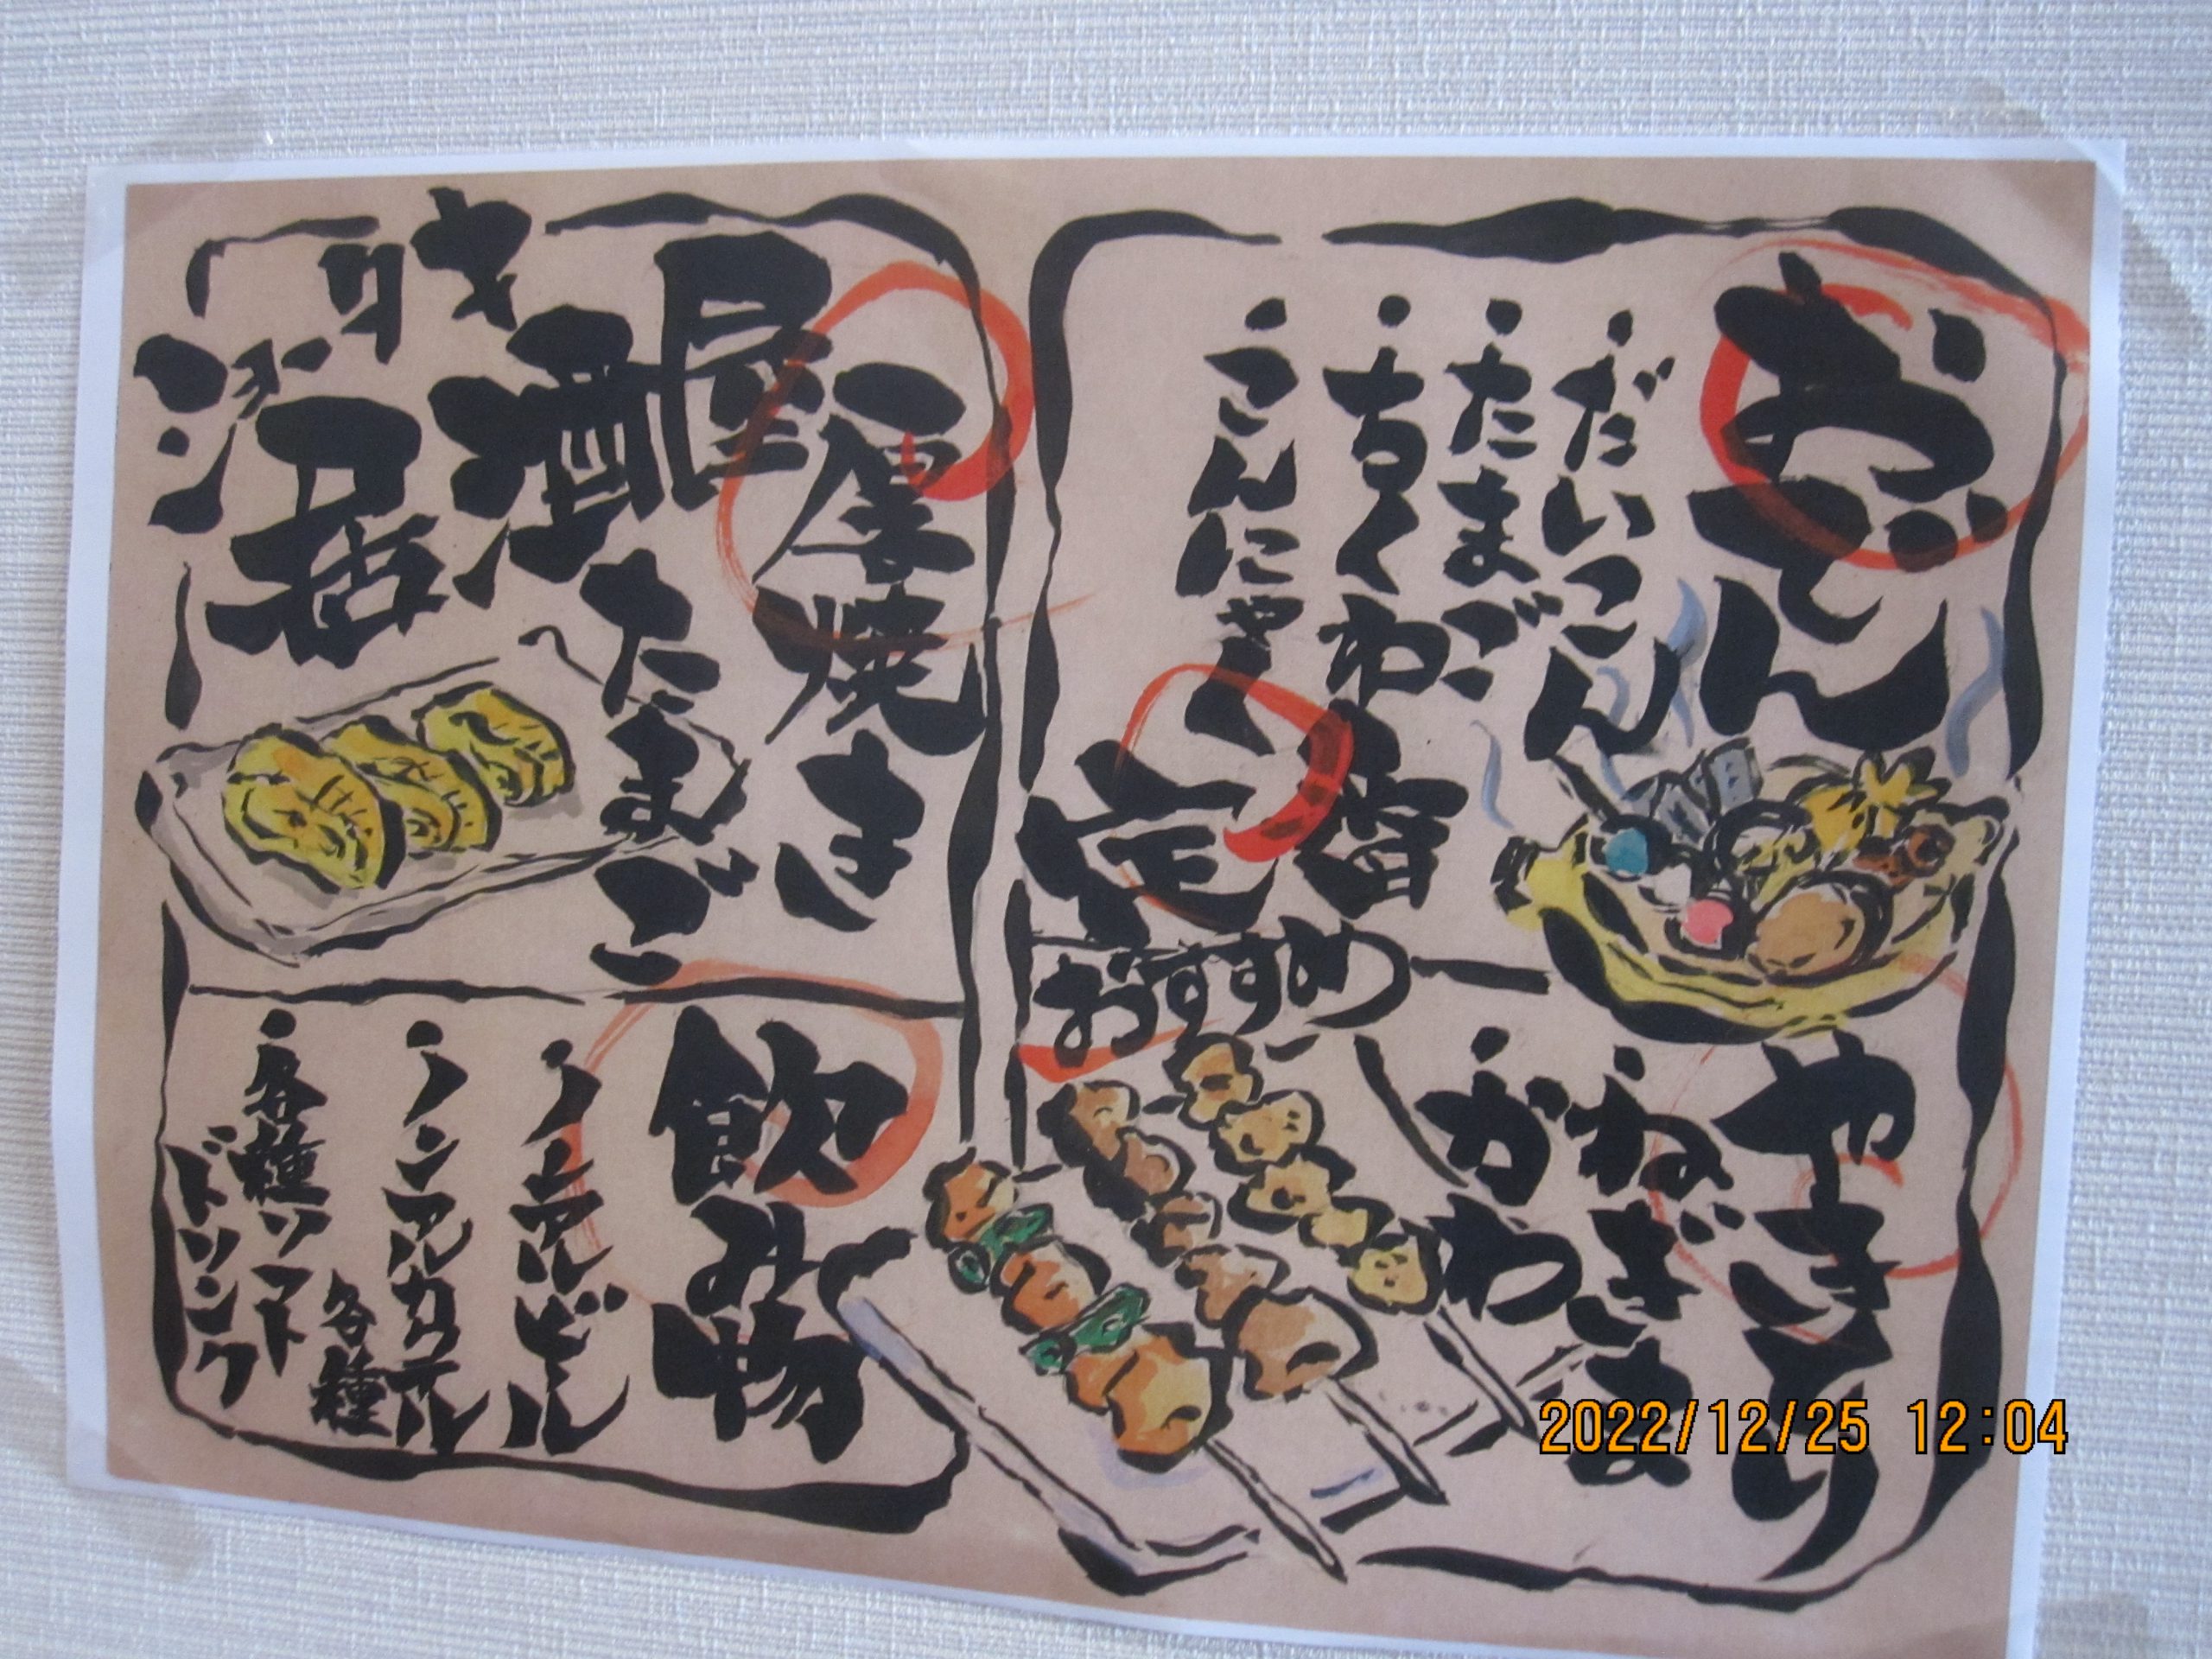 おでん
・だいこん
・たまご
・ちくわ
・こんにゃく
定番
おすすめ
やきとり
・ねぎま
・かわ
厚焼き
たまご
居酒屋
飲み物
・ノンアルビール
・ノンアルカクテル
各種
・各種ソフト
ドリンク
2022/12/25 12:04